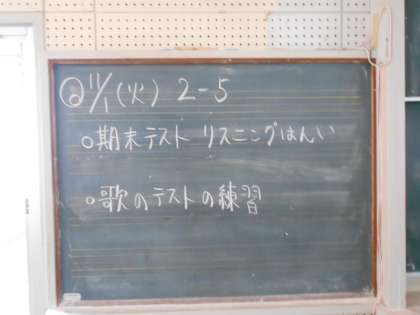 ②11/1(火) 2-5
○期末テスト リスニングはんい
○歌のテストの練習